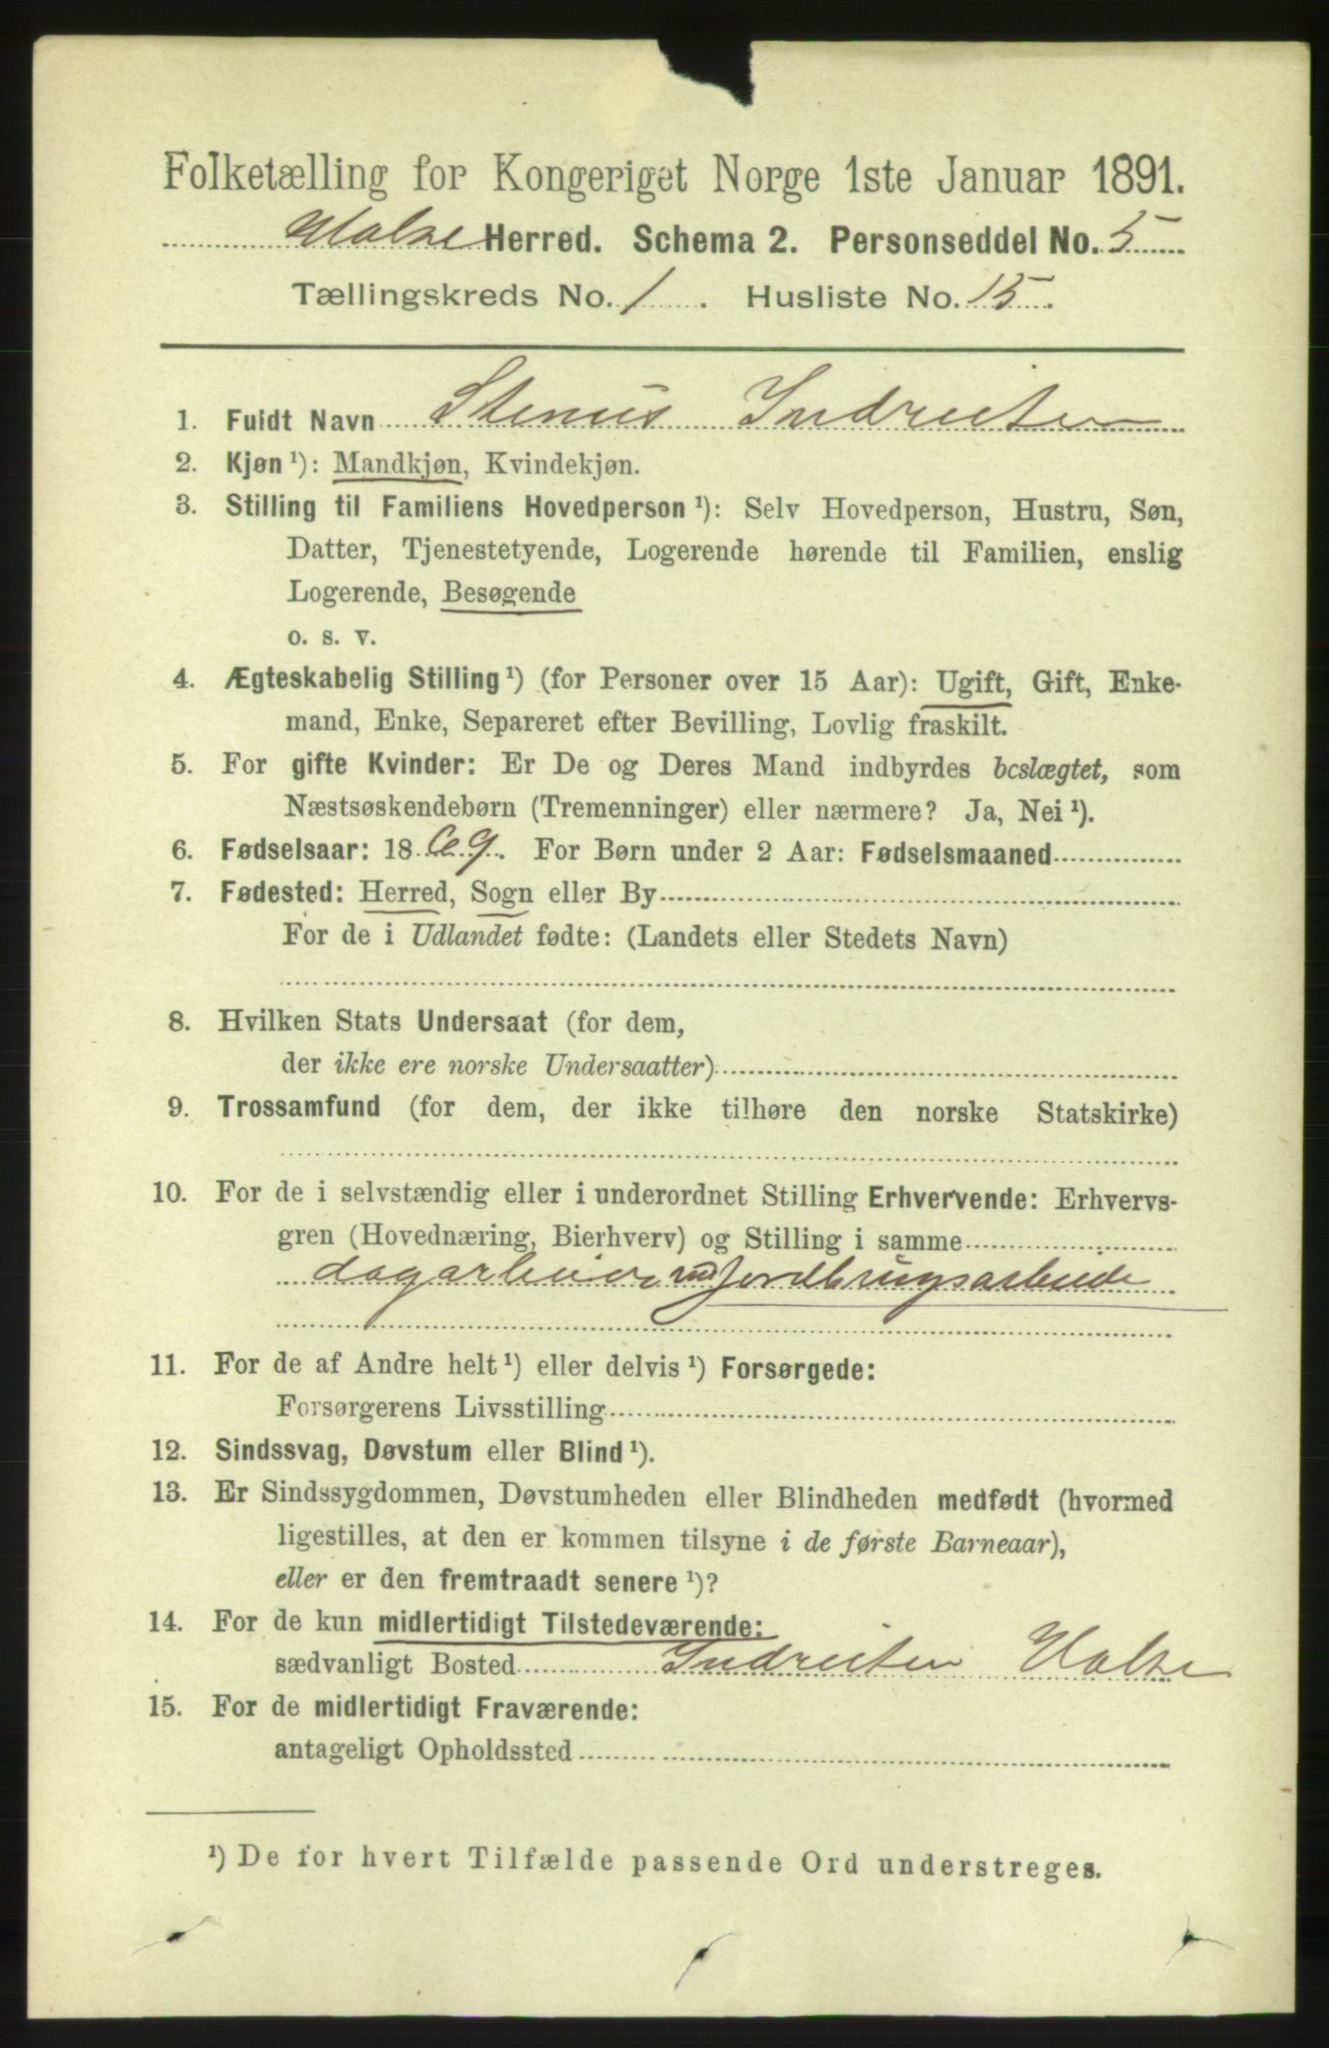 Folketælling for Kongeriget Norge 1ste Januar 1891.
Halse Herred. Schema 2. Personseddel No. 5
Tællingskreds No. 1. Husliste No. 15.
1. Fuldt Navn Stenus Indreiten
2. Kjøn ¹): Mandkjøn, Kvindekjøn.
3. Stilling til Familiens Hovedperson ¹): Selv Hovedperson, Hustru, Søn,
Datter, Tjenestetyende, Logerende hørende til Familien, enslig
Logerende, Besøgende
o. s. v.
4. Ægteskabelig Stilling ¹) (for Personer over 15 Aar): Ugift, Gift, Enke-
mand, Enke, Separeret efter Bevilling, Lovlig fraskilt.
5. For gifte Kvinder: Er De og Deres Mand indbyrdes beslægtet, som
Næstsøskendebørn (Tremenninger) eller nærmere? Ja, Nei ¹).
6. Fødselsaar: 1869. For Børn under 2 Aar: Fødselsmaaned
7. Fødested: Herred, Sogn eller By
For de i Udlandet fødte: (Landets eller Stedets Navn)
8. Hvilken Stats Undersaat (for dem,
der ikke ere norske Undersaatter)
9. Trossamfund (for dem, der ikke tilhøre den norske Statskirke)
10. For de i selvstændig eller i underordnet Stilling Erhvervende: Erhvervs-
gren (Hovednæring, Bierhverv) og Stilling i samme
dagarbeider ved jordbrugsarbeide
11. For de af Andre helt ¹) eller delvis ¹) Forsørgede:
Forsørgerens Livsstilling
12. Sindssvag, Døvstum eller Blind ¹).
13. Er Sindssygdommen, Døvstumheden eller Blindheden medfødt (hvormed
ligestilles, at den er kommen tilsyne i de første Barneaar),
eller er den fremtraadt senere ¹)?
14. For de kun midlertidigt Tilstedeværende:
sædvanligt Bosted Indreiten Halse
15. For de midlertidigt Fraværende:
antageligt Opholdssted
¹) De for hvert Tilfælde passende Ord understreges.